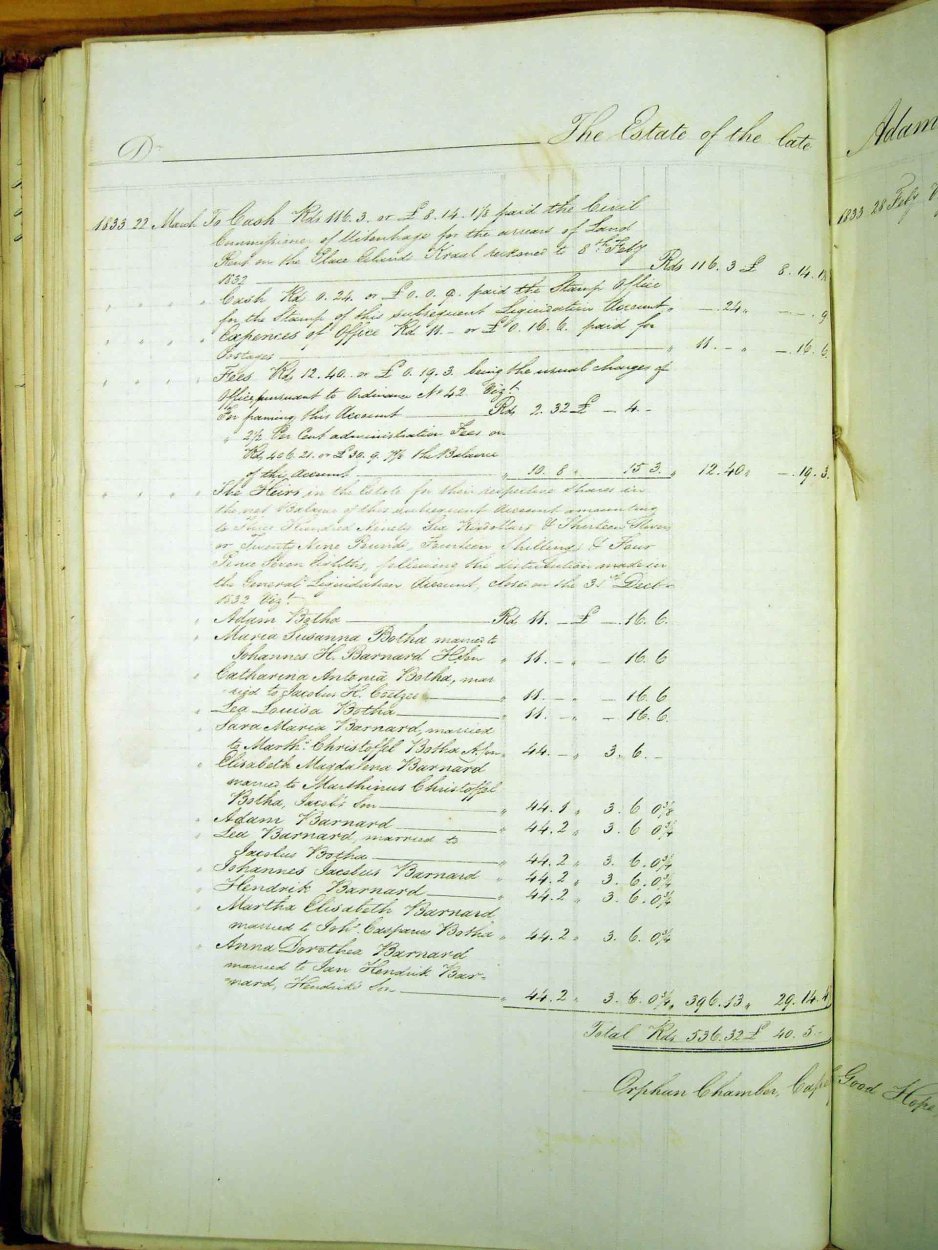 Dr The Estate of the late
1833 22 March To Cash Rds 116.3. or £8.14.1⅛ paid the Civil
Commissioner of Uitenhage for the arrears of Land
Rent on the Place Eland's Kraal reckoned to 8th Feby
1832 Rds 116.3 £ 8.14.1⅛
" " " " Cash Rd 0.24. or £0.0.9. paid the Stamp Office
for the Stamp of this subsequent Liquidation Account " —.24 " —.—.9
" " " " Expences of Office Rd 11.— or £0.16.6. paid for
Postages " 11.— " —.16.6
" " " " Fees Rds 12.40. or £0.19.3. being the usual charges of
Office pursuant to Ordinance No 42 Vizt
For framing this Account Rds 2.32 £ —.4.—
" 2½ Per Cent administration Fees on
Rds 406.21. or £30.9.7⅛ the Balance
of this Account " 10.8 " 15.3. " 12.40 " —.19.3.
" " " " The Heirs in the Estate for their respective Shares in
the net Balance of this subsequent Account amounting
to Three Hundred Ninety Six Rixdollars & Thirteen Stivers
or Twenty Nine Pounds, Fourteen Shillings & Four
Pence Seven Eighths, following the distribution made in
the General Liquidation Account, closed on the Dect
1832 Vizt
" Adam Botha Rds 11.— £ —.16.6.
" Maria Susanna Botha married to
Johannes H. Barnard HSon " 11.— " —.16.6
" Catharina Antonia Botha, mar
ried to Jacobus H. Coetzee " 11.— " —.16.6
" Lea Louisa Botha " 11.— " —.16.6.
" Sara Maria Barnard, married
to Marths Christoffel Botha A.Son " 44.— " 3.6.—
" Elisabeth Magdalena Barnard
married to Marthinus Christoffel
Botha, Jacob's Son " 44.1 " 3.6.0⅜
" Adam Barnard " 44.2 " 3.6.0¾
" Lea Barnard, married to
Jacobus Botha " 44.2 " 3.6.0¾
" Johannes Jacobus Barnard " 44.2 " 3.6.0¾
" Hendrik Barnard " 44.2 " 3.6.0¾
" Martha Elisabeth Barnard
married to Johs Casparus Botha " 44.2 " 3.6.0¾
" Anna Dorothea Barnard
married to Jan Hendrik Bar-
nard, Hendrik's Son " 44.2 " 3.6.0¾ " 396.13 " 29.14.4
Total Rds 536.32 £ 40.5.
Orphan Chamber, Cape Good Hope
Adam
1833 28 Feby